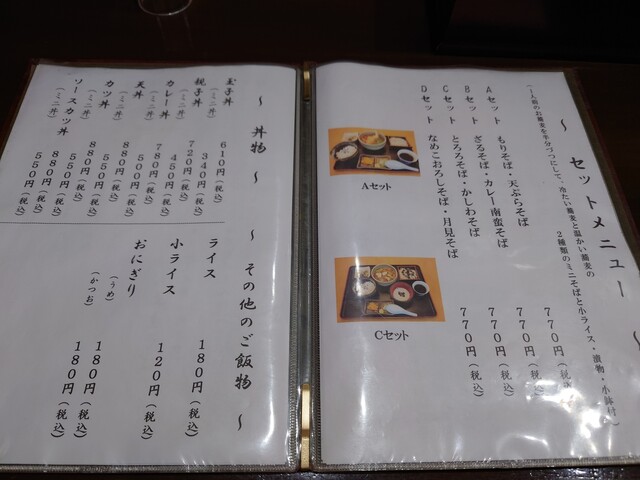 〜 セットメニュー 〜
(一人前のお蕎麦を半分づつにして、冷たい蕎麦と温かい蕎麦の
２種類のミニそばと小ライス・漬物・小鉢付)
Ａセット もりそば・天ぷらそば ７７０円（税込）
Ｂセット ざるそば・カレー南蛮そば ７７０円（税込）
Ｃセット とろろそば・かしわそば ７７０円（税込）
Ｄセット なめこおろしそば・月見そば ７７０円（税込）
Aセット
Cセット
〜 丼物 〜
玉子丼 ６１０円（税込）
（ミニ丼） ３４０円（税込）
親子丼 ７２０円（税込）
（ミニ丼） ４５０円（税込）
カレー丼 ７８０円（税込）
（ミニ丼） ５００円（税込）
天丼 ８８０円（税込）
（ミニ丼） ５５０円（税込）
カツ丼 ８８０円（税込）
（ミニ丼） ５５０円（税込）
ソースカツ丼 ８８０円（税込）
（ミニ丼） ５５０円（税込）
〜 その他のご飯物 〜
ライス １８０円（税込）
小ライス １２０円（税込）
おにぎり
（うめ） １８０円（税込）
（かつお） １８０円（税込）